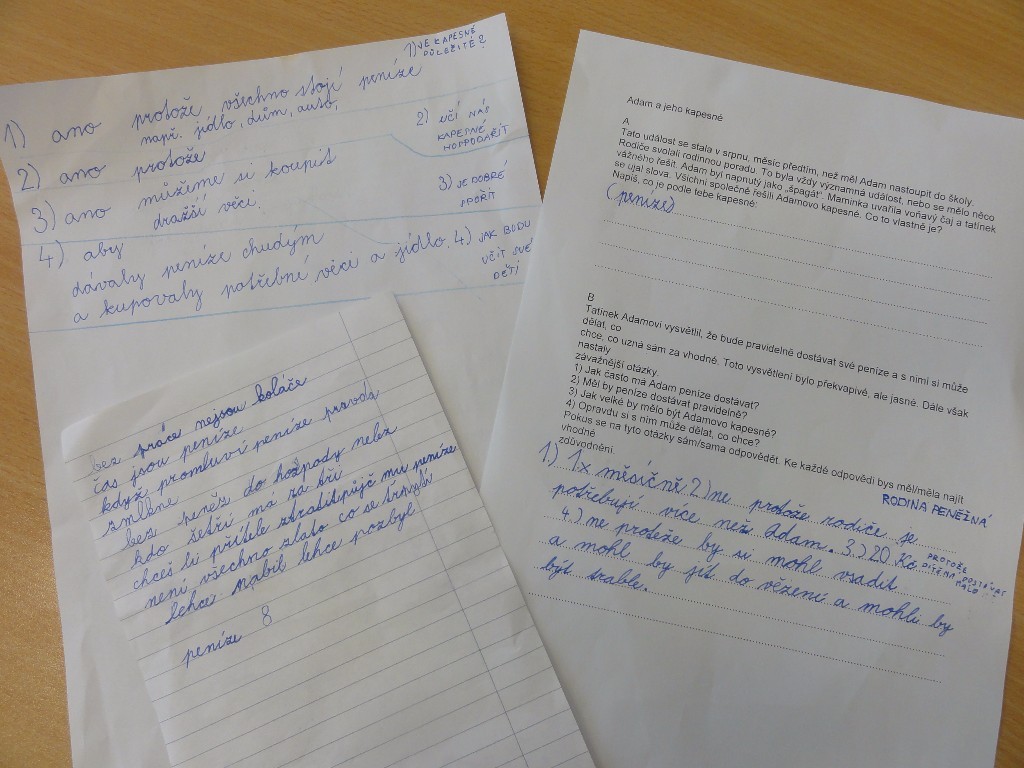 1) JE KAPESNÉ
DŮLEŽITÉ?
1) ano protože všechno stojí peníze
např. jídlo, dům, auto,
2) UČÍ NÁS
KAPESNÉ
HOPPODAŘIT
2) ano protože
3) ano můžeme si koupit
dražší věci.
3) JE DOBRÉ
SPOŘIT
4) aby
dávaly peníze chudým
a kupovaly potřebné věci a jídlo.
4) JAK BUDU
UČIT SVÉ
DĚTI
bez práce nejsou koláče
čas jsou peníze
když promluví peníze pravda
zmlkne
bez peněz do hospody nelez
kdo šetří má za tři
chceš li přítele ztratit půjč mu peníze
není všechno zlato co se třpytí
lehce nabil lehce pozbyl
peníze 8
Adam a jeho kapesné
A
Tato událost se stala v srpnu, měsíc předtím, než měl Adam nastoupit do školy.
Rodiče svolali rodinnou poradu. To byla vždy významná událost, nebo se mělo něco
vážného řešit. Adam byl napnutý jako „špagát“. Maminka uvařila voňavý čaj a tatínek
se ujal slova. Všichni společně řešili Adamovo kapesné. Co to vlastně je?
Napiš, co je podle tebe kapesné:
(peníze)
B
Tatínek Adamovi vysvětlil, že bude pravidelně dostávat své peníze a s nimi si může
dělat, co
chce, co uzná sám za vhodné. Toto vysvětlení bylo překvapivé, ale jasné. Dále však
nastaly
závažnější otázky.
1) Jak často má Adam peníze dostávat?
2) Měl by peníze dostávat pravidelně?
3) Jak velké by mělo být Adamovo kapesné?
4) Opravdu si s ním může dělat, co chce?
Pokus se na tyto otázky sám/sama odpovědět. Ke každé odpovědi bys měl/měla najít
vhodné
zdůvodnění.
1) 1x měsíčně. 2) ne protože rodiče je
RODINA PENĚŽNÁ
potřebují více než Adam. 3.) 20 Kč PROTOŽE
DÍTĚ MÁ DOSTÁVAT
MÁLO
4.) ne protože by si mohl vsadit
a mohl by jít do vězení a mohli by
být trable.